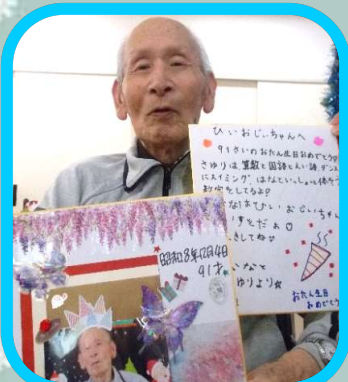 ひいおじいちゃんへ
91さいのおたん生日おめでとう
さゆりは算数と国語とえい語、ダンス
にスイミング、はなといっしょに体そう
教室をしてるよ
ひいおじいちゃん
だぁ
してね
なと
ゆりより
おたん生日
おめでとう
昭和8年12月4日
91才